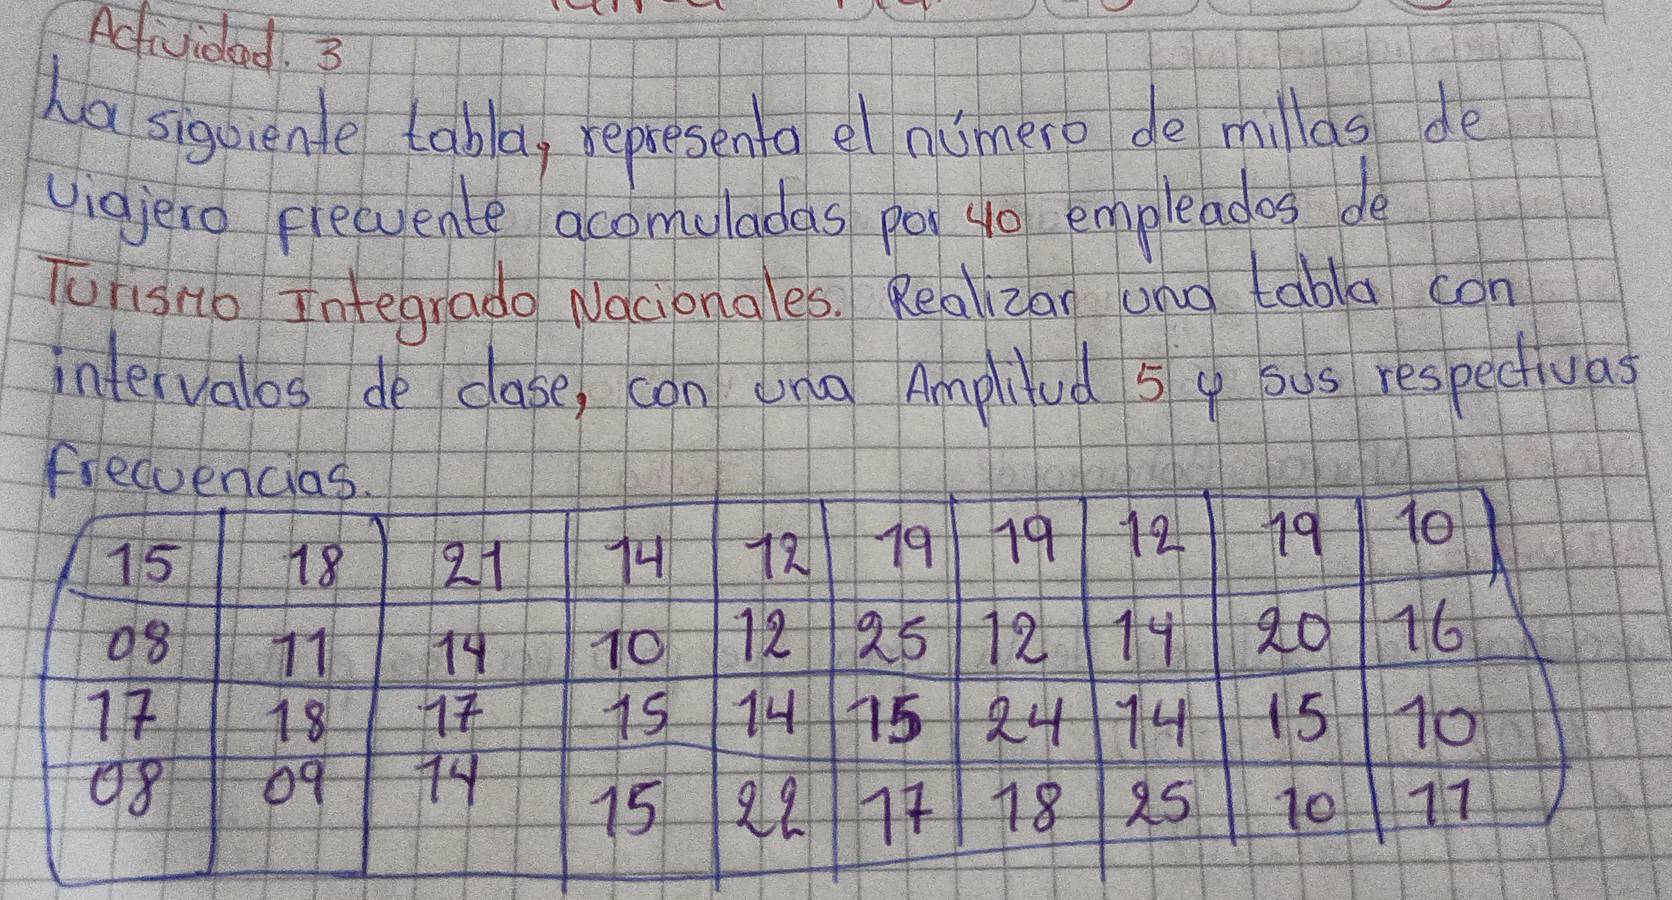 Actividad. 3
La siguiente tabla, representa el número de millas de
viajero frecuente acomuladas por 40 empleados de
Turismo Integrado Nacionales. Realizar una tabla con
intervalos de clase, con una Amplitud 5 y sus respectivas
frecuencias.
15 18 21 14 12 19 19 12 19 10
08 11 14 10 12 25 12 14 20 16
17 18 17 15 14 15 24 14 15 10
08 09 14 15 22 17 18 25 10 11